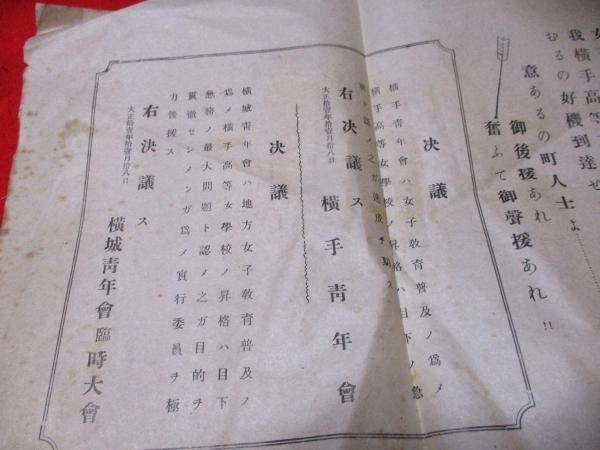 我横手高等
むるの好機到達せ
意あるの町人士よ……
御後援あれ
奮ふて御聲援あれ!!
決議
横手青年會ハ女子教育普及ノ爲メ
横手高等女學校ノ昇格ハ目下ノ急
右決議ス
大正拾壹年拾壹月拾八日
横手青年會
決議
横城青年會ハ地方女子教育普及ノ
爲メ横手高等女學校ノ昇格ハ目下
急務ノ最大問題ト認メ之ガ目的ヲ
貫徹セシメンガ爲メ實行委員ヲ極
力後援ス
右決議ス
大正拾壹年拾壹月拾八日
横城青年會臨時大會